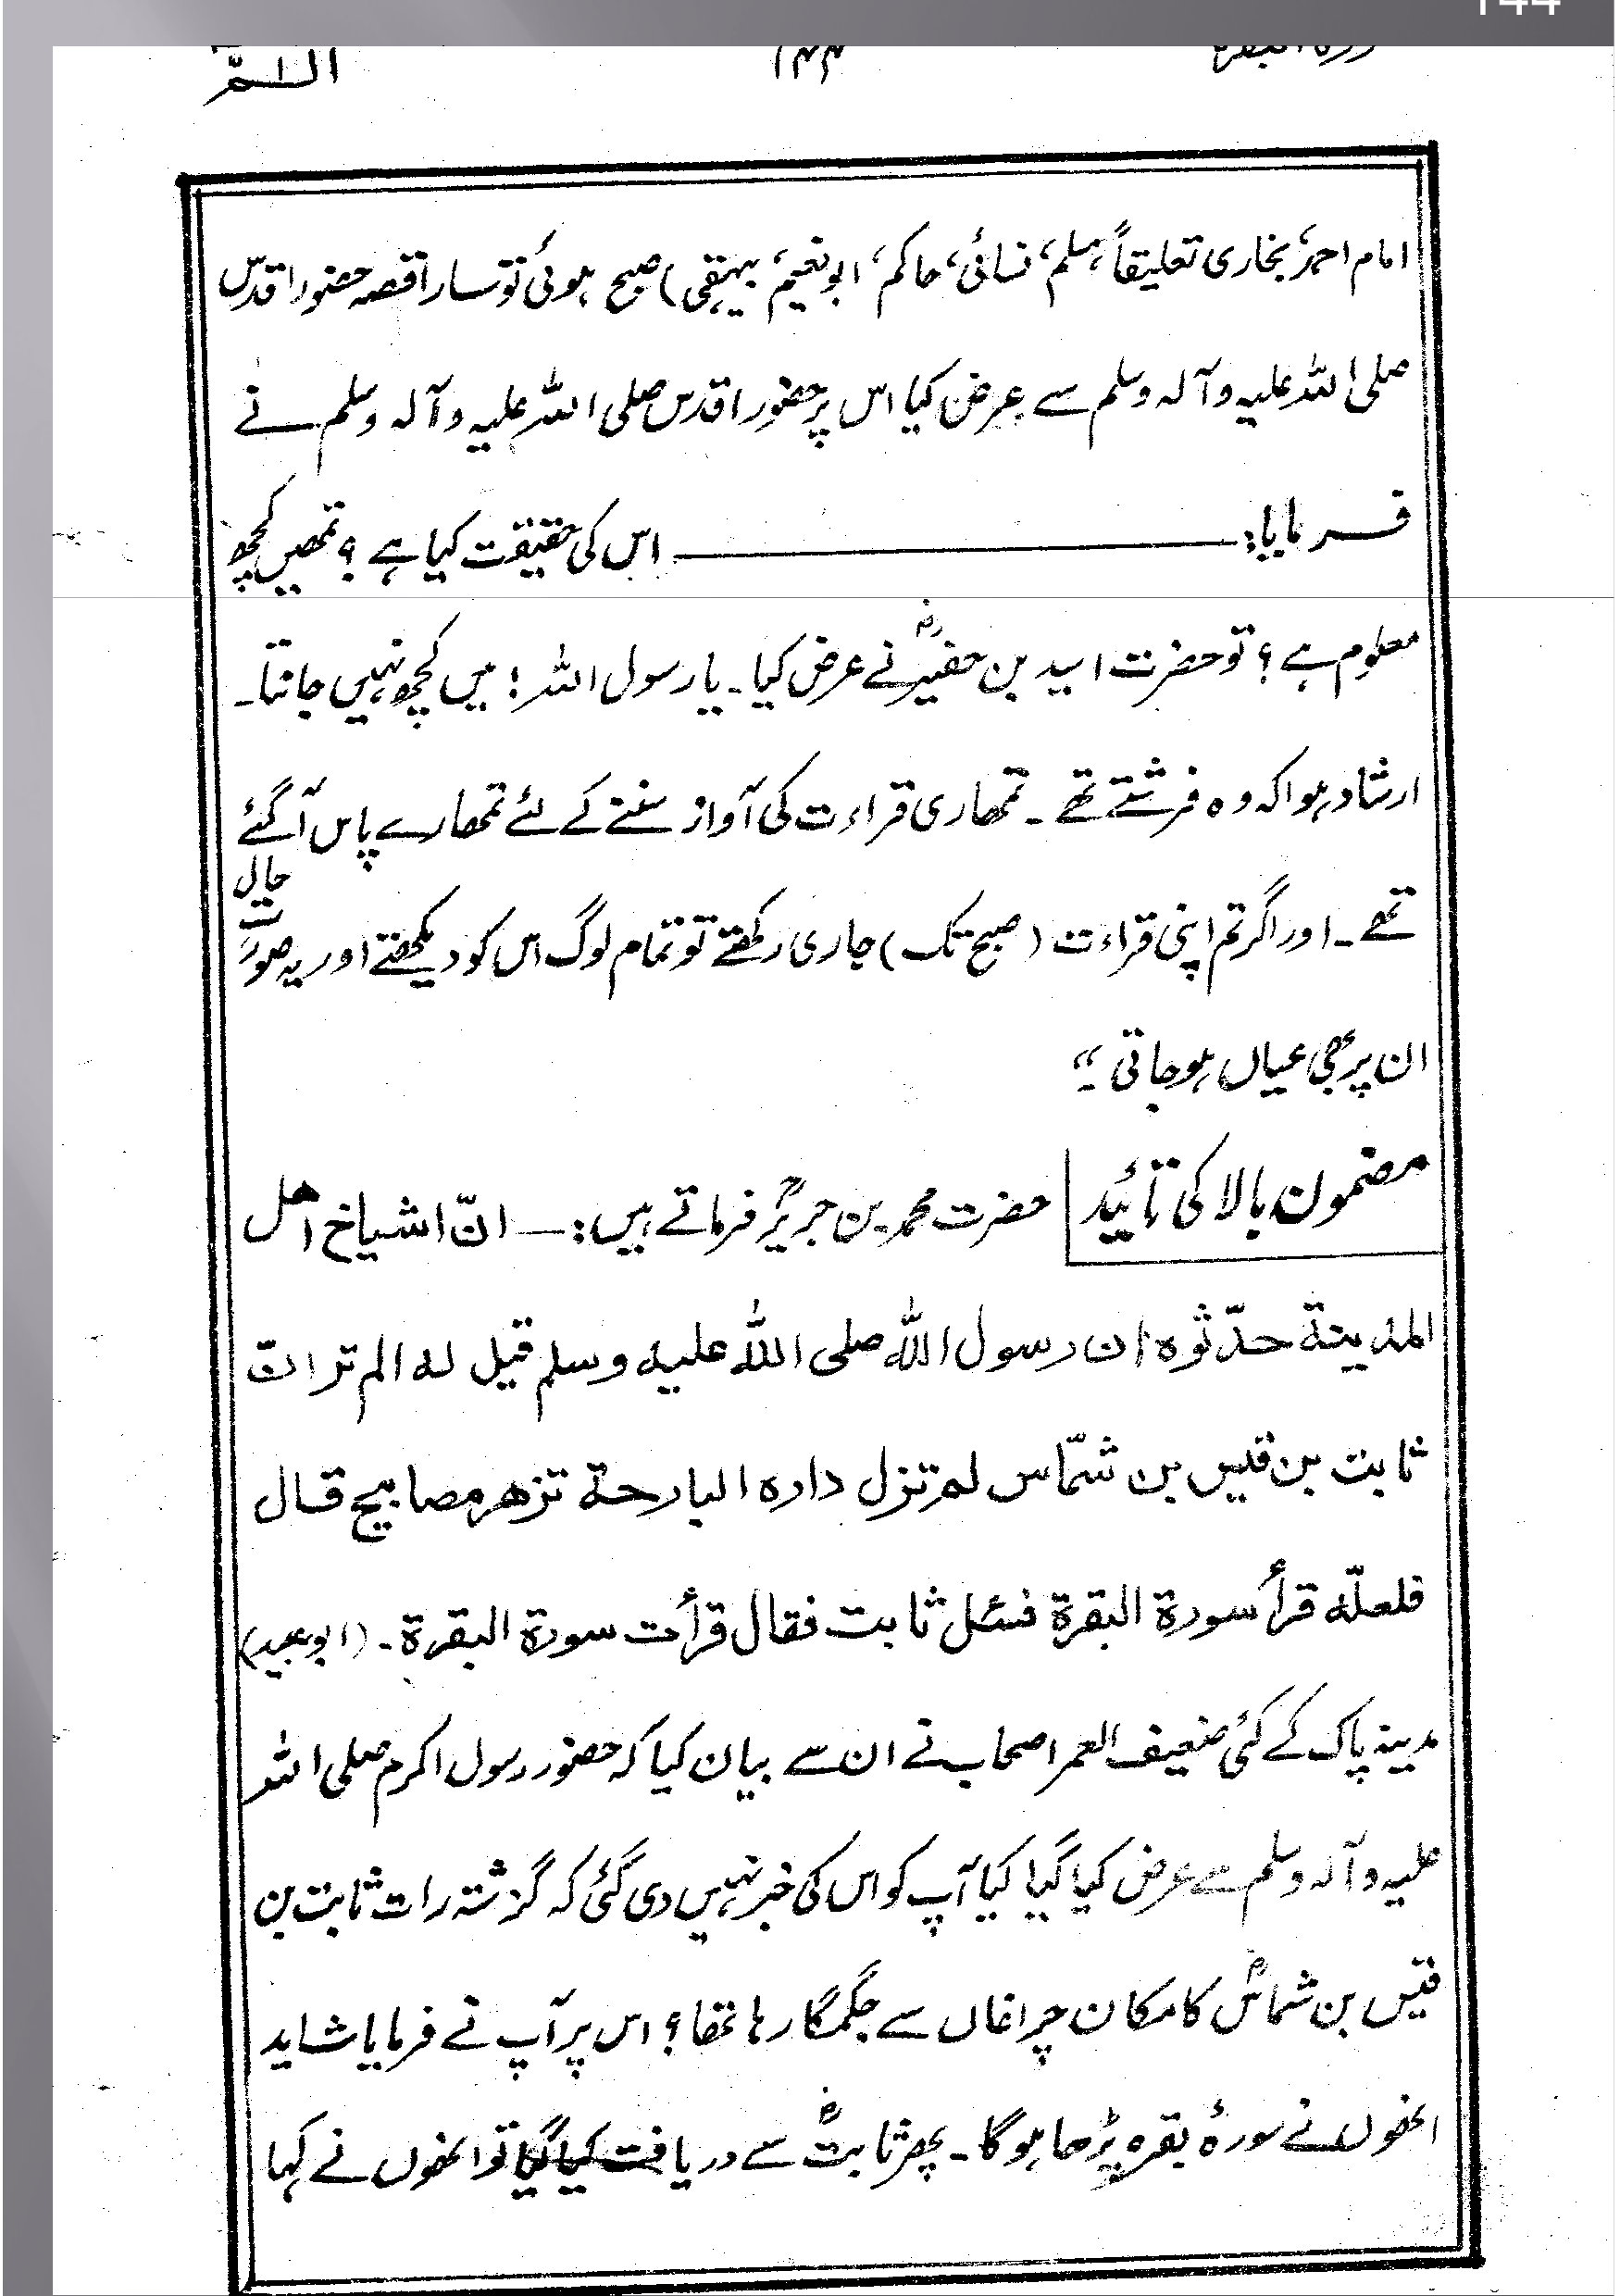 144
سورۃ البقرۃ ۱۴۴ الٓـمّٓ
امام احمدؒ، بخاری تعلیقاً، مسلم، نسائی، حاکم، ابونعیم، بیہقی) صبح ہوئی تو سارا قصہ حضور اقدس
صلی اللہ علیہ وآلہ وسلم سے عرض کیا اس پر حضور اقدس صلی اللہ علیہ وآلہ وسلم نے
فرمایا: ——— اس کی حقیقت کیا ہے؟ تمھیں کچھ
معلوم ہے؟ تو حضرت اسید بن حضیرؓ نے عرض کیا۔ یا رسول اللہ! میں کچھ نہیں جانتا۔
ارشاد ہوا کہ وہ فرشتے تھے۔ تمھاری قراءت کی آواز سننے کے لئے تمھارے پاس آگئے
تھے۔ اور اگر تم اپنی قراءت (صبح تک) جاری رکھتے تو تمام لوگ اس کو دیکھتے اور یہ صورت حال
ان پر بھی عیاں ہوجاتی۔“
مضمون بالا کی تائید حضرت محمد بن جریرؒ فرماتے ہیں:— انّ اشیاخ اھل
المدینة حدّثوہ ان رسول اللہ صلی اللہ علیہ وسلم قیل لہ الم تر انّ
ثابت بن قیس بن شمّاس لم تزل دارہ البارحة تزھر مصابیح قال
فلعلّہ قرأ سورة البقرة فسئل ثابت فقال قرأت سورة البقرة۔ (ابوعبید)
مدینہ پاک کے کئی ضعیف العمر اصحاب نے ان سے بیان کیا کہ حضور رسول اکرم صلی اللہ
علیہ وآلہ وسلم سے عرض کیا گیا کیا آپ کو اس کی خبر نہیں دی گئی کہ گزشتہ رات ثابت بن
قیس بن شماسؓ کا مکان چراغاں سے جگمگا رہا تھا؟ اس پر آپ نے فرمایا شاید
انھوں نے سورۂ بقرہ پڑھا ہوگا۔ پھر ثابتؓ سے دریافت کیا گیا تو انھوں نے کہا